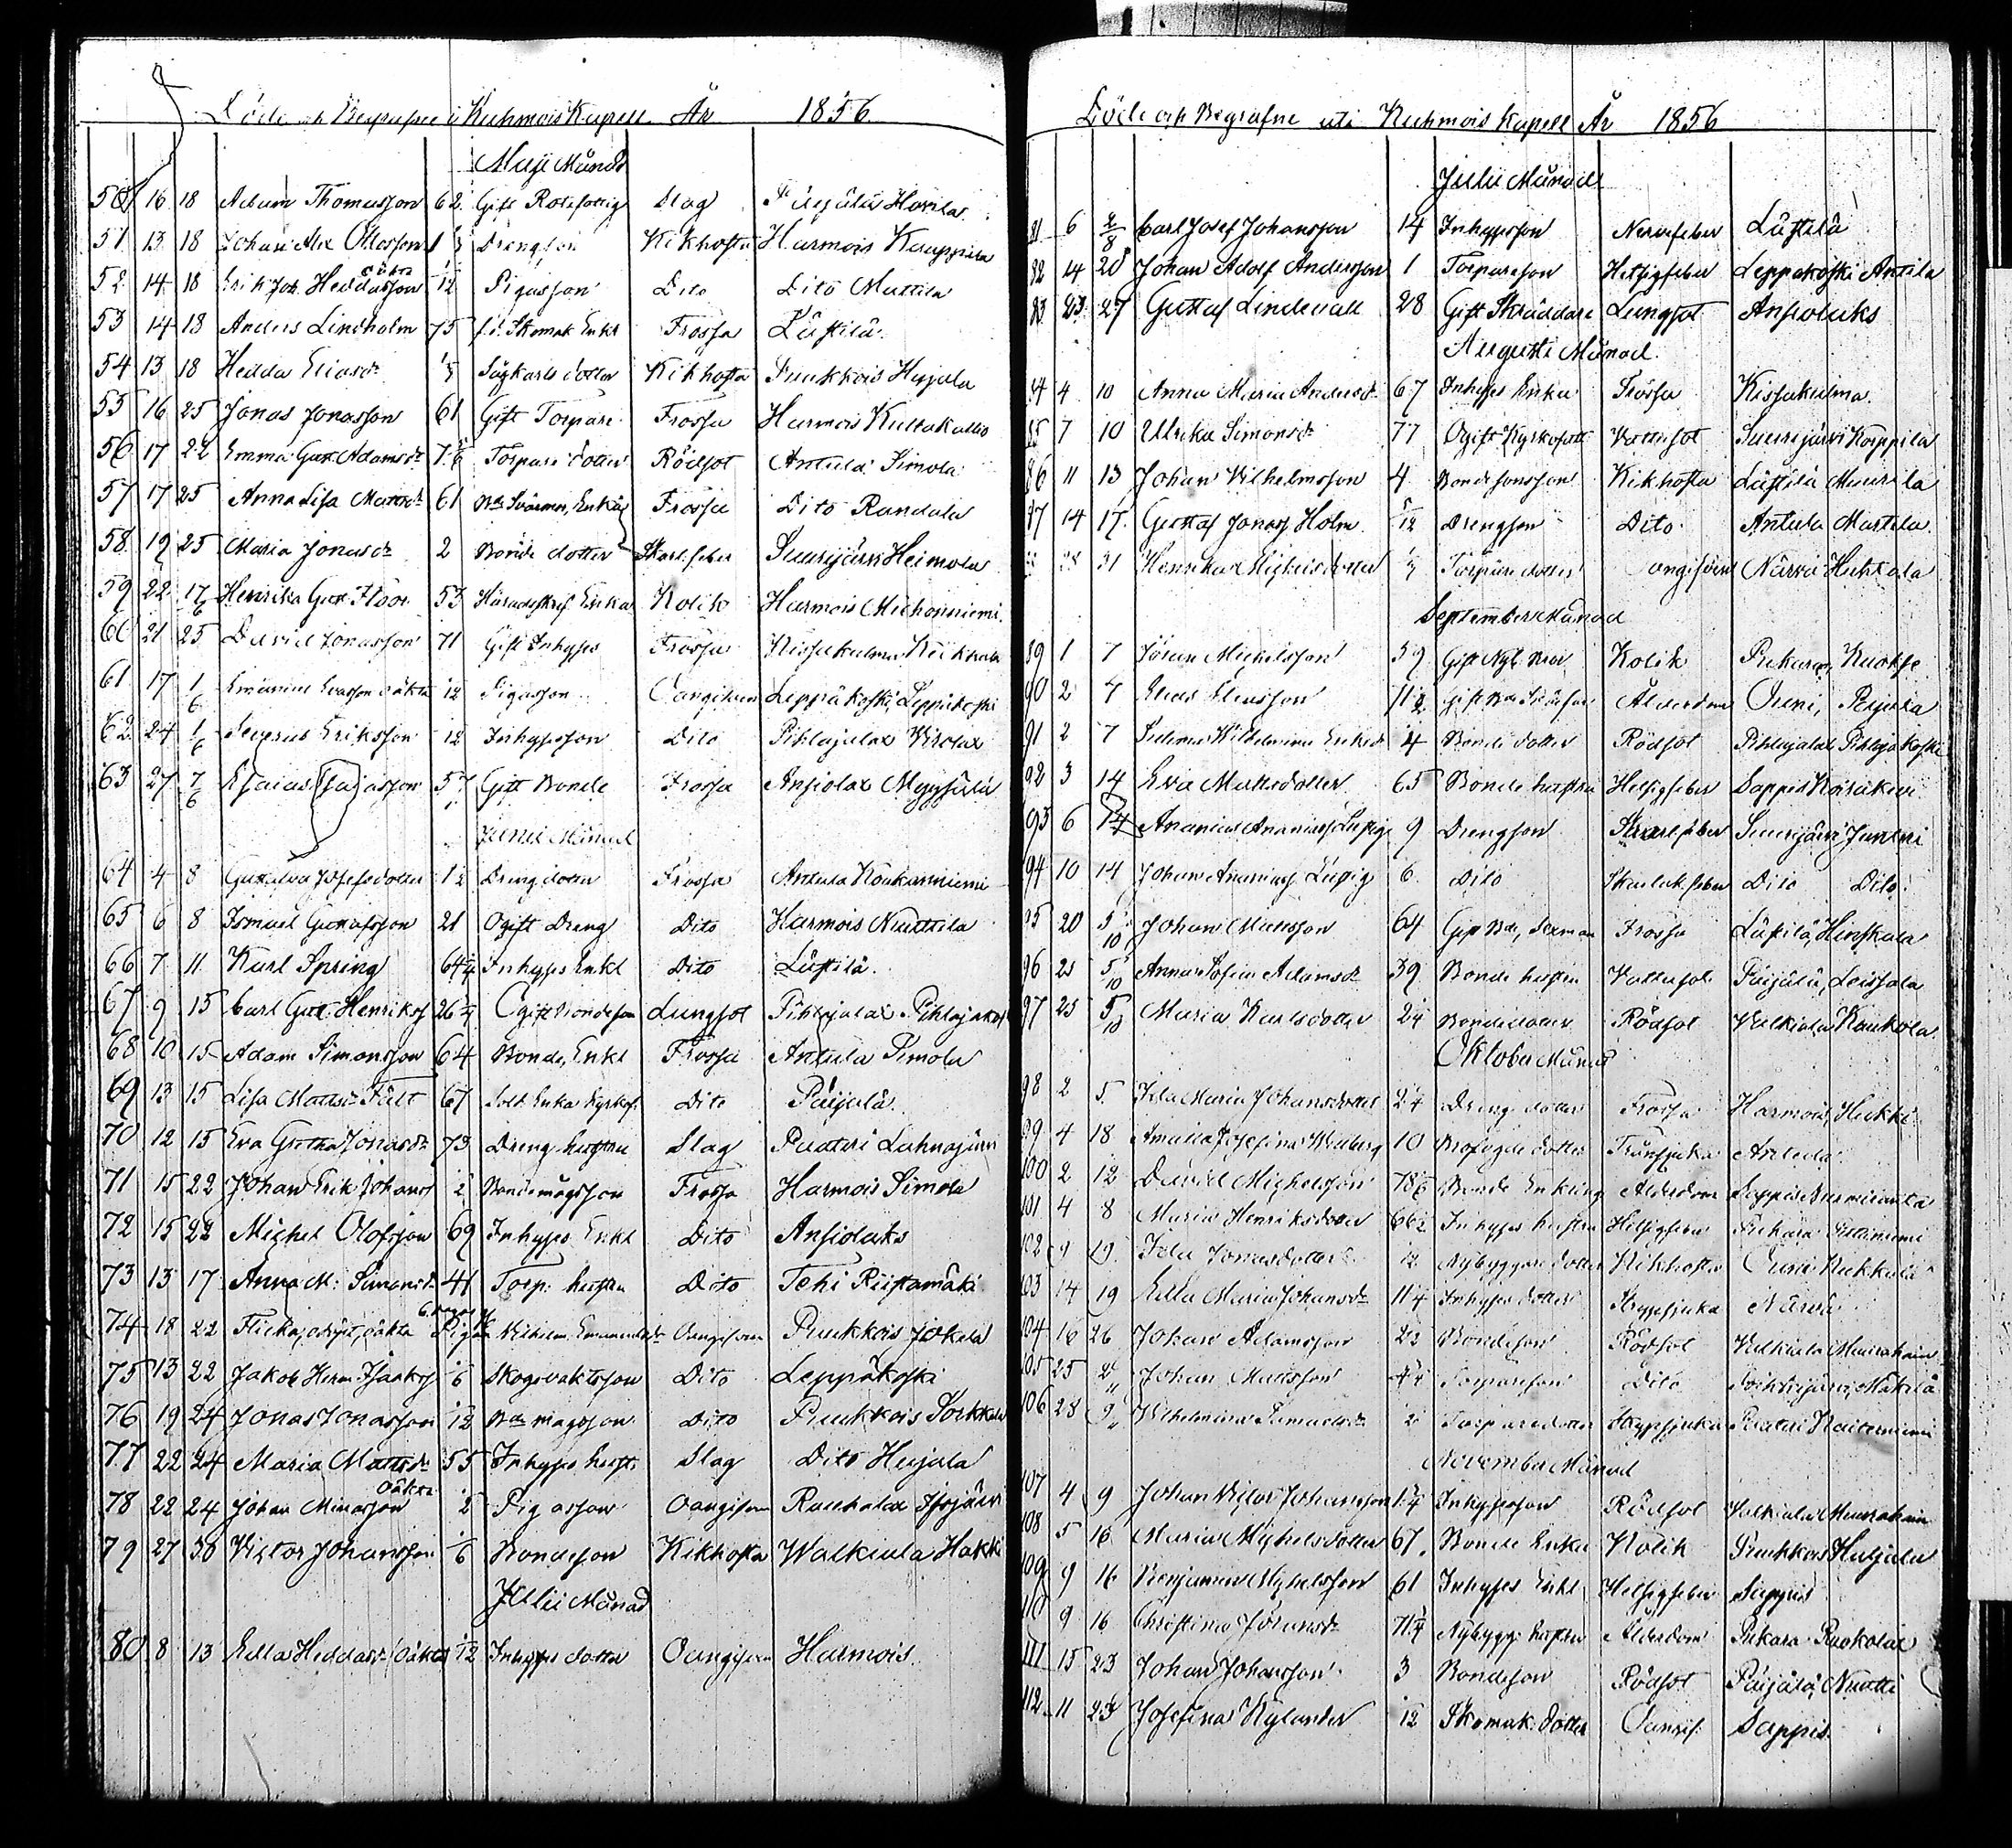 Döde och Begrafne i Kuhmois Kapell År 1856
Maji Månad
50 16 18 Adam Thomasson 62 Gift Rotefattig Slag Päijälä Havila
51 13 18 Johan Alex Ottosson Drengson Kikhosta Harmois Kauppila
52 14 18 Erik Joh. Heddasson oäkta 1/12 Pigasson Dito Dito Mattila
53 14 18 Anders Lindholm 75 f.d. Skomak Enkl Frossa Lästilä
54 13 18 Hedda Eliasdr Sågkarls dotter Kikhosta Puukkois Hujala
55 16 25 Jonas Jonasson 61 Gift Torpare Frossa Harmois Kultakallio
56 17 22 Emma Gust. Adamsdr Torpare dotter Rödsot Antula Simola
57 17 25 Anna Lisa Mattsdr 61 Frossa Dito Randala
58 19 25 Maria Jonasdr 2 Bonde dotter Skarl.feber Suurijärvi Heimola
59 22 17/6 Henrika Gust. Floor 53 Häradsskrif Enka Kolik Harmois Michonniemi
60 21 25 David Jonasson 71 Gift Inhyses Frossa Kissakulma Keikkala
61 17 1/6 Emanuel Evasson oäkta 1/12 Pigasson Oangifven Leppäkoski Leppäkoski
62 24 1/6 Severus Eriksson 1/12 Inhysesson Dito Pihlajalax Virolax
63 27 7/6 Esaias Esajasson 57 Gift Bonde Frossa Ansiolax Myysälä
Junii Månad
64 4 8 Gustava Josefsdotter 1/2 Drengdotter Frossa Antula Koukarniemi
65 6 8 Ismael Gustafsson 21 Ogift Dreng Dito Harmois Nuuttila
66 7 11 Karl Spring 64 1/4 Inhyses Enkl Dito Lästilä
67 9 15 Carl Gust. Henrikss 26 Ogift Bondeson Lungsot Pihlajalax Pihlajakoski
68 10 15 Adam Simonsson 64 Bonde, Enkl Frossa Antula Simola
69 13 15 Lisa Mattsdr Fält 67 Sold. Enka Kyrkof. Dito Päijälä
70 12 15 Eva Gretha Jonasdr 73 Dreng hustru Slag Puateri Lahnajärvi
71 15 22 Johan Erik Johanss 1/2 Bondemågsson Frossa Harmois Simola
72 15 22 Michel Olofsson 69 Inhyses Enkl Dito Ansiolaks
73 13 17 Anna M. Simonsdr 41 Torp. hustru Dito Tehi Riistamäki
74 18 22 Flicka, odöpt, oäkta 6 dagar Piga Wilhelm. Emanuelsdr Oangifven Puukkois Jokela
75 13 22 Jakob Herm Isaakss 1/6 Skogsvaktsson Dito Leppäkoski
76 19 24 Jonas Jonasson 1/12 Bde mågsson Dito Puukkois Sorkkala
77 22 24 Maria Mattsdr 55 Inhyses hustr. Slag Dito Hujala
78 22 24 Johan Minasson oäkta 1/2 Pigasson Oangifven
79 27 Victor Johansson 1/6 Bondeson Kikhosta Walkiala Hakki
Julii Månad
80 8 13 Ulla Heddasdr (oäkta) 1/12 Inhyses dotter Oangifven Harmois
Döde och Begrafne uti Kuhmois Kapell År 1856
Julii Månad
81 6 Carl Josef Johansson 14 Inhysesson Nervfeber Lästilä
82 14 20 Johan Adolf Andersson 1 Torpareson Hetsigfeber Leppäkoski Antila
83 23 27 Gustaf Lindevall 28 Gift Skräddare Lungsot Ansiolaks
Augusti Månad
84 4 10 Anna Maria Andersdr 67 Inhyses Enka Frossa Kissakulma
85 7 10 Ulrika Simonsdr 77 Ogift Kyrkofatt. Vattusot Suurijärvi Korppila
86 11 13 Johan Vilhelmsson 4 Bondesonsson Kikhosta Lästilä Muurila
87 14 17 Gustaf Jonass Holm 5/12 Drengson Dito Antula Martila
88 28 31 Henrika Michelsdotter Torpare dotter oangifven Närvä Huhtala
September Månad
89 1 7 Göran Michelsson 59 Gift Nyb. Kolik Pukara, Ruokse
90 2 7 Elias Eliasson Ålderdom Runi, Reijula
91 2 7 Selma Wilhelmina Eriksdr 1/4 Bonde dotter Rödsot Pihlajalax Pihlajakoski
92 3 14 Eva Mattsdotter 65 Bonde hustru Hetsigfeber Sappis Koivukevi
93 6 14 Ananias Ananiass Lupig 9 Drengson Skarl.feber Suurijärvi Junkeri
94 10 14 Johan Ananiass Lupig 6 Dito Skarlak.feber Dito Dito
95 20 5/10 Johan Mattsson 64 Gift Bde, Sexman Frossa Lästilä, Hinskala
96 25 5/10 Anna Sofia Adamsdr 39 Bonde hustru Vattusot Päijälä, Leissala
97 25 5/10 Maria Karlsdotter 2 1/4 Bondedotter Rödsot Valkiala Kaukola
Oktober Månad
98 2 5 Ida Maria Johansdotter 2 1/4 Drenge dotter Frossa Harmois, Hukki
99 4 18 Amalia Josefina Weiberg 10 Brofogde dotter Trånsjuka Antula
100 2 12 David Michelsson 78 Bonde Enkling Ålderdom Sappis Nurmiranta
101 4 8 Maria Henriksdotter 66 1/2 Inhyses hustru Hetsigfeber Pukara
102 9 19 Ida Jonasdotter 1/2 Nybyggare dotter Kikhosta Runi Kukkula
103 14 19 Ulla Maria Johansdr 11 1/4 Inhyses dotter Krypsjuka Närvä
104 16 26 Johan Adamsson Bondeson Rödsot Valkiala Muurahain
105 25 2/11 Johan Mattsson Torpareson Dito Mäkilä
106 28 9/11 Wilhelmina Samuelsdr 1/2 Torparedotter Krypsjuka Puateri Raiterniemi
November Månad
107 4 9 Johan Victor Johansson 1 1/4 Inhysesson Rödsot Valkiala Muurahain
108 5 16 Maria Michelsdotter 67 Bonde Enka Kolik Puukkois Huljala
109 9 16 Benjamin Michelsson 61 Inhyses Enkl Hetsigfeber Sappis
110 9 16 Christina Göransdr 71 1/4 Nybygg. hustru Ålderdom Pukara Ruokolax
111 15 23 Johan Johansson 3 Bondeson Rödsot Päijälä, Nuutti
112 11 23 Josefina Kylander 1/12 Skomak. dotter Oangif. Sappis